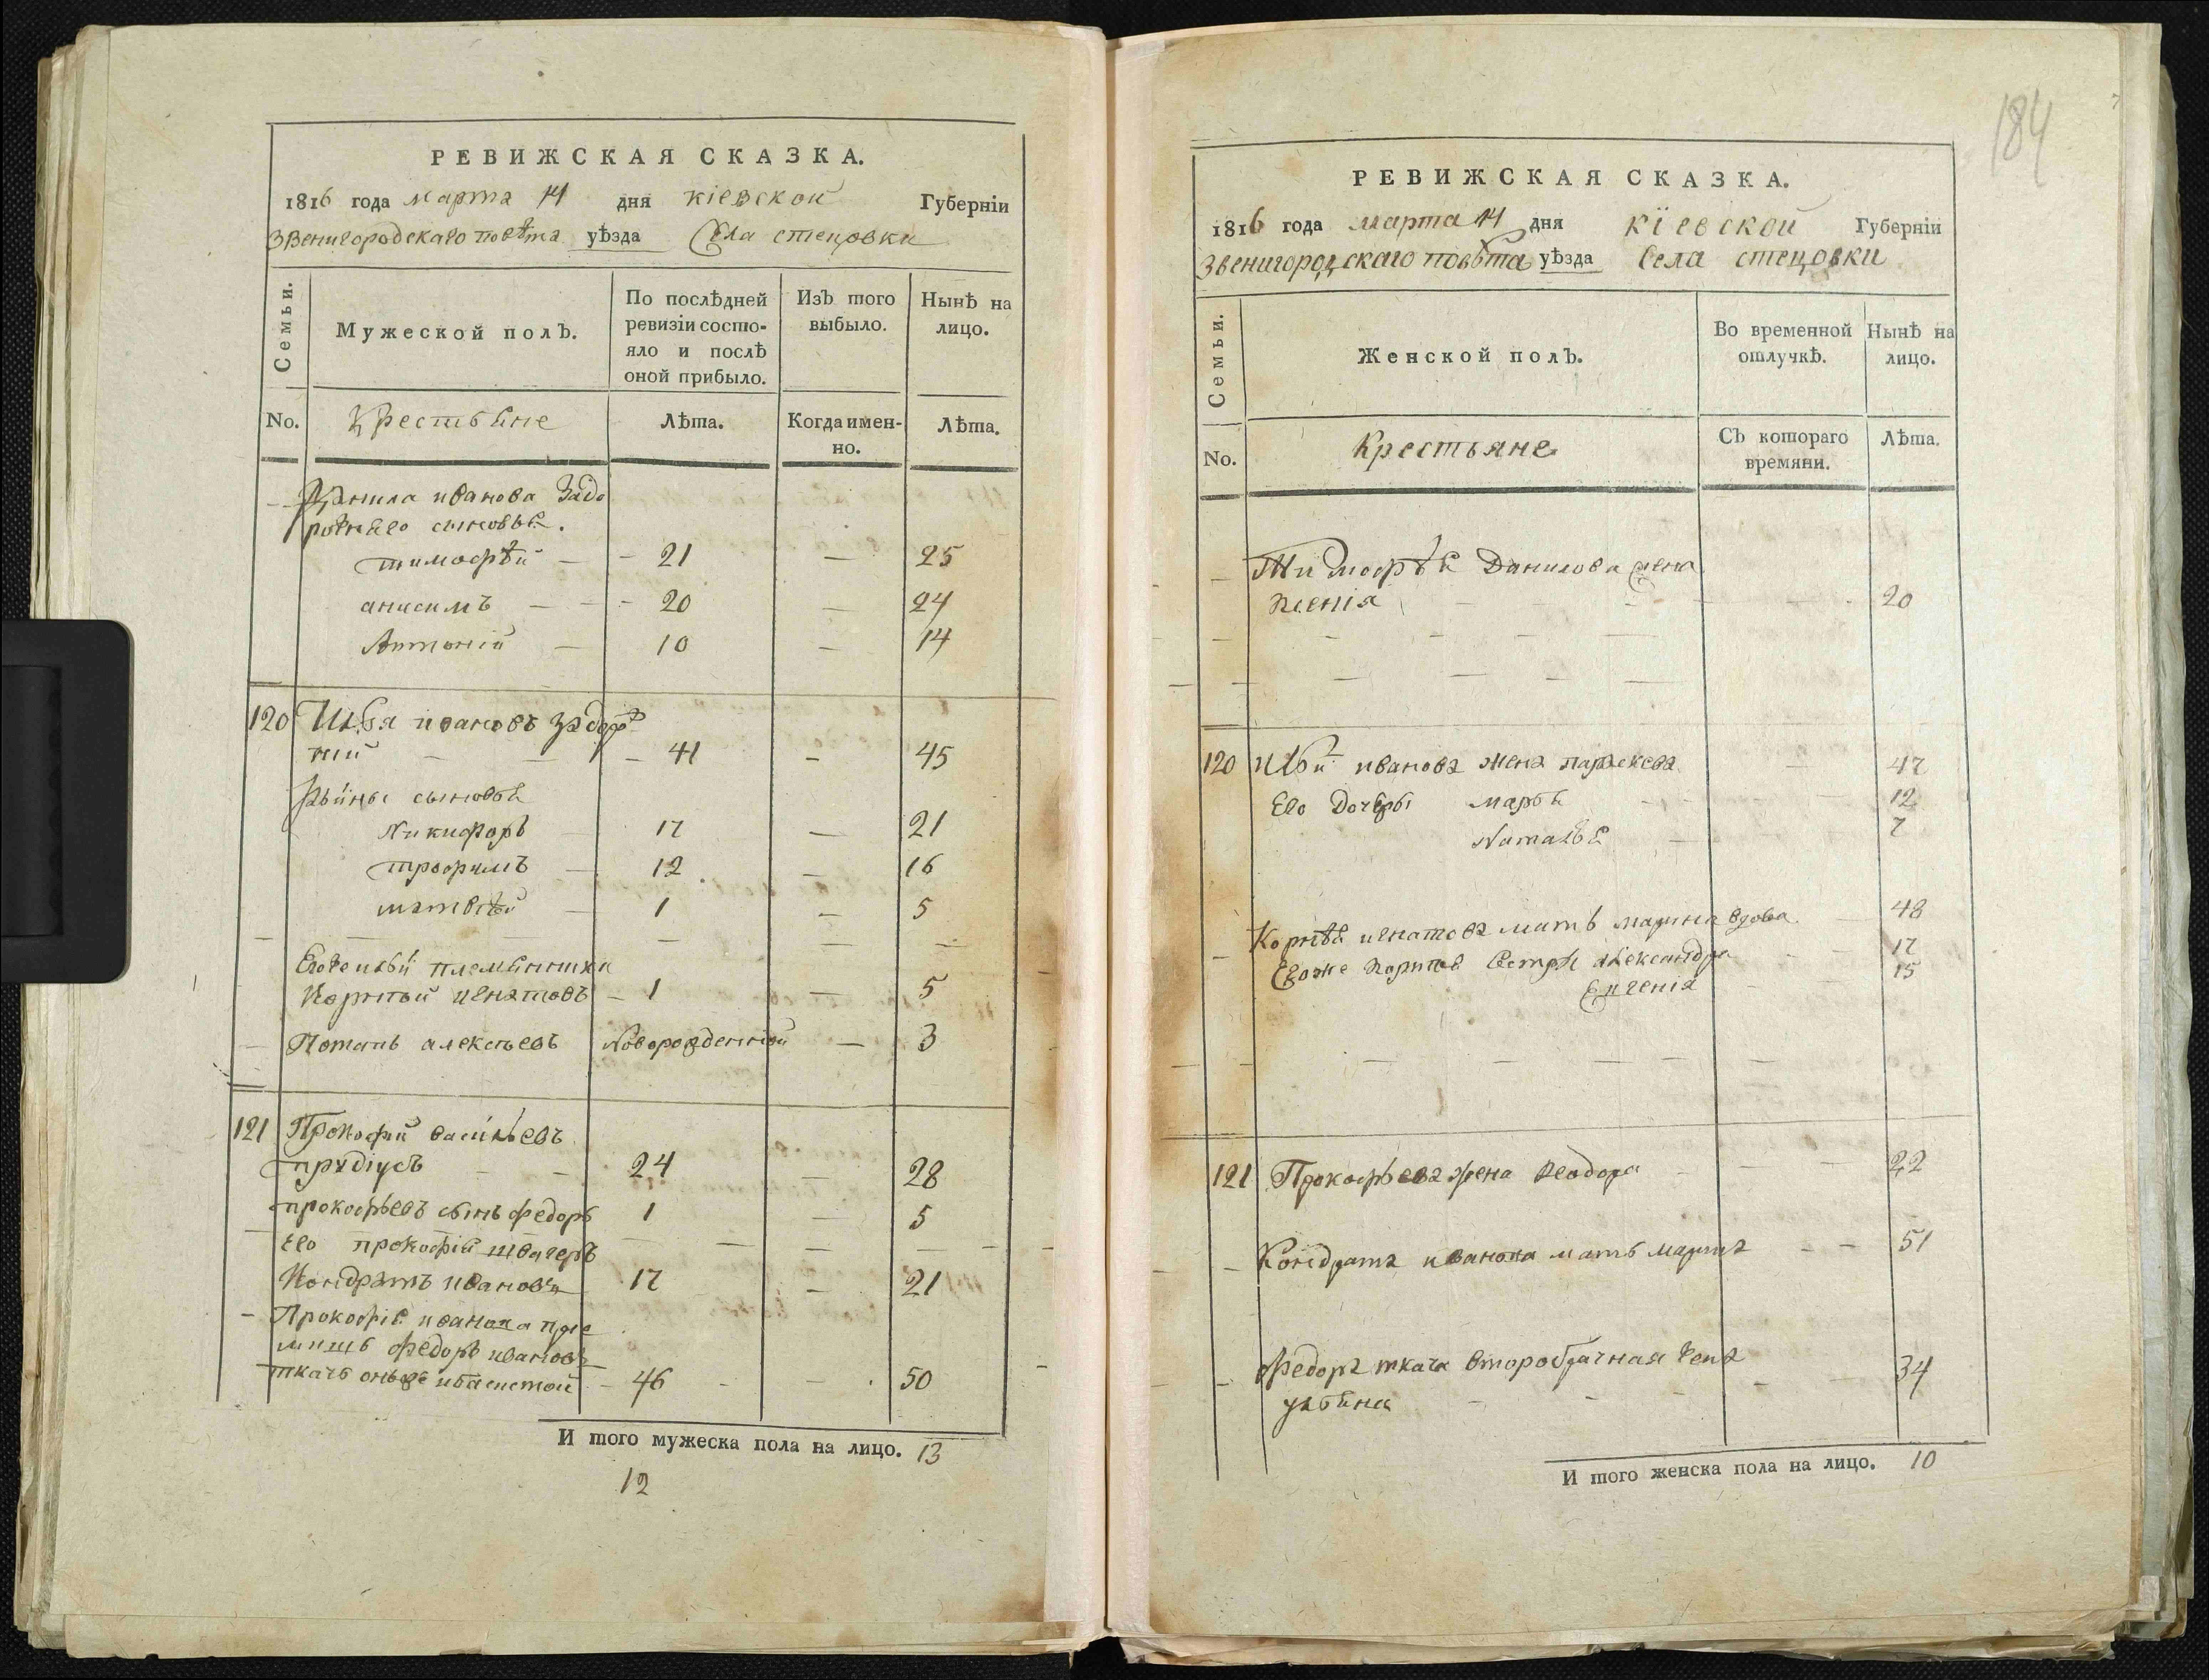 РЕВИЖСКАЯ СКАЗКА.
1816 года марта 14 дня кіевской Губерніи
Звенигородскаго повѣта уѣзда Села стецовки
Семьи.
Мужеской полЪ.
По послѣдней ревизіи состо-
яло и послѣ
оной прибыло.
ИзЪ того
выбыло.
НынѢ на
лицо.
No.
Крестьяне
Лѣта.
Когда имен-
но.
Лѣта.
Данила иванова Задо
рожнаго сыновья.
тимофѣй — 21 — 25
анисимъ — 20 — 24
Антоній — 10 — 14
120 Илья ивановъ задорж
ній — 41 — 45
Ильины сыновья
Никифоръ 17 — 21
трофимъ — 12 — 16
матвѣй — 1 — 5
племянники
Корнѣй игнатовъ — 1 — 5
Потапъ алексѣевъ Новорожденній — 3
121 Прокофий васильевъ
прудіусъ — 24 — 28
прокофьевъ сынъ федоръ 1 — 5
Его прокофія швагеръ
Кондратъ ивановъ 17 — 21
Прокофія иванова прие
мишъ федоръ ивановъ
ткачъ — 46 — 50
И того мужеска пола на лицо. 13
12
184
РЕВИЖСКАЯ СКАЗКА.
1816 года марта 14 дня кїевской Губерніи
Звенигородскаго повѣта уѣзда Села стецовки
Семьи.
Женской полЪ.
Во временной
отлучкѢ.
НынѢ на
лицо.
No.
Крестьяне
СЪ котораго
времяни.
Лѣта.
Тимофѣя Данилова жена
Ксенія — 20
120 Ильи иванова жена параскева — 47
Его Дочери марья — 12
Наталья — 7
Корнѣя игнатова мать марина вдова — 48
Егоже Корнѣя Сестри александра — 17
Евгенія — 15
121 Прокофьева жена Феодора — 22
Кондрата иванова мать марта — 51
Федора ткача второбрачная жена
ульяна — 34
И того женска пола на лицо. 10